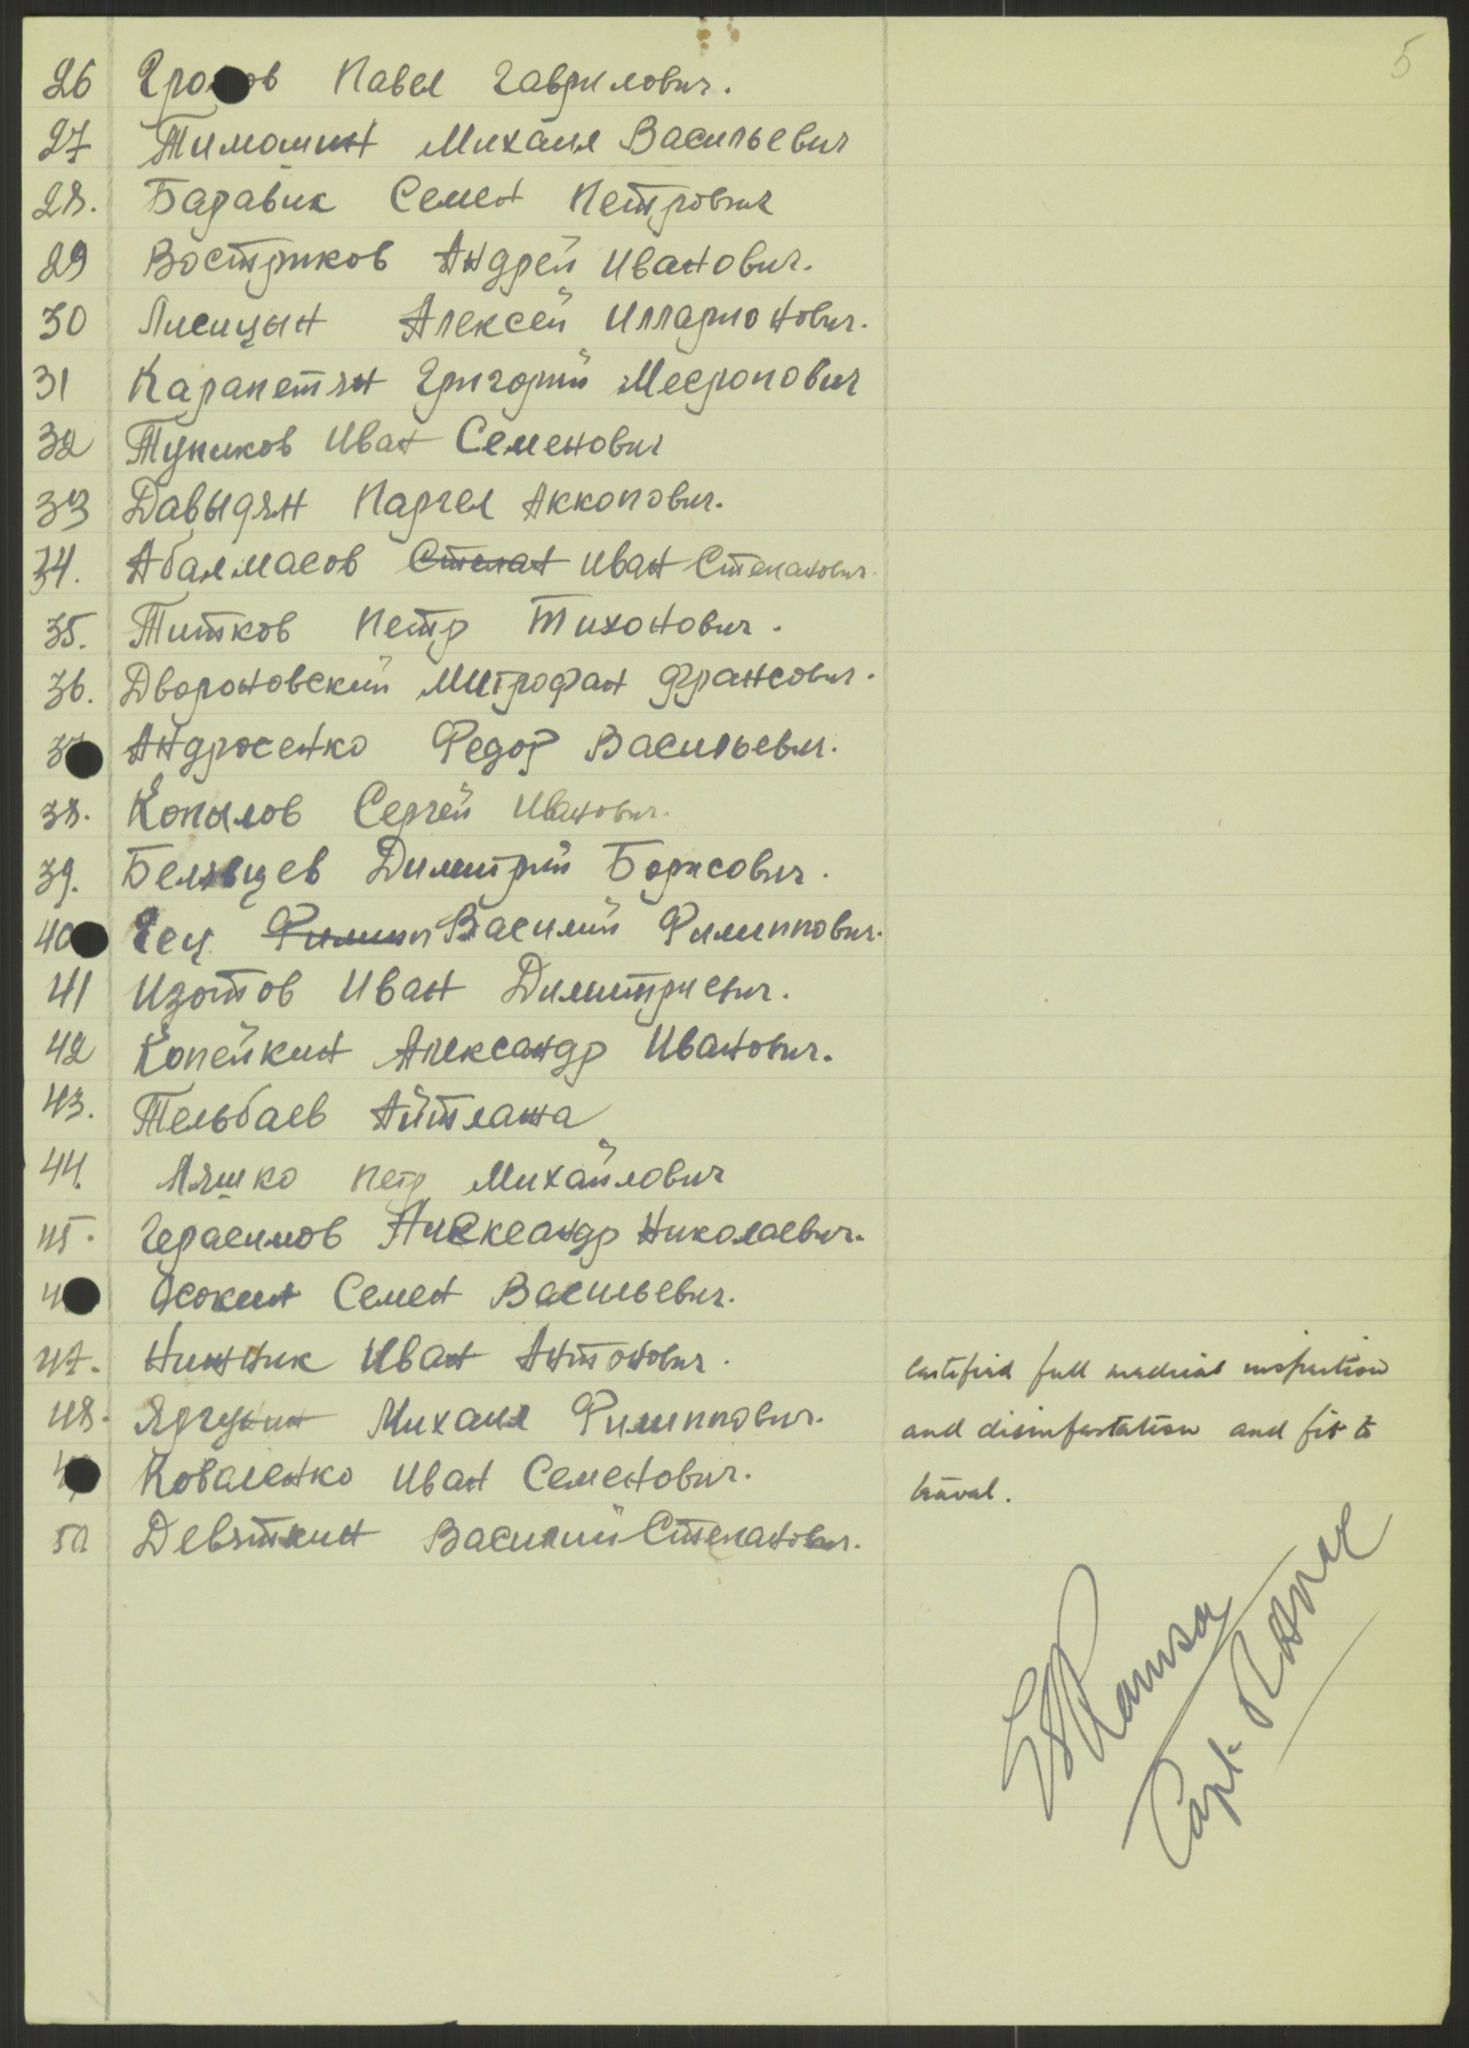 5
26 Громов Павел Гаврилович.
27 Тимошин Михаил Васильевич
28. Баравик Семен Петрович
29 Востриков Андрей Иванович.
30 Лисицын Алексей Илларионович.
31 Карапетян Григорий Месропович
32 Тупиков Иван Семенович
33 Давыдян Паргел Аккопович.
34. Абалмасов Степан Иван Степанович.
35. Титков Петр Тихонович.
36. Двороновский Митрофан Франсович.
37 Андросенко Федор Васильевич.
38. Копылов Сергей Иванович.
39. Белявцев Димитрий Борисович.
40 Гец Филипп Василий Филиппович.
41 Изотов Иван Димитриевич.
42 Копейкин Александр Иванович.
43. Тельбаев Айтлажа
44. Ляшко Петр Михайлович
45. Герасимов Александр Николаевич.
4 Осокин Семен Васильевич.
47. Нижник Иван Антонович.
Certified full medical inspection
48. Михаил Филиппович.
and disinfestation and fit to
4 Коваленко Иван Семенович.
travel.
50 Девяткин Василий Степанович.
Ramsay
Capt. RAMC